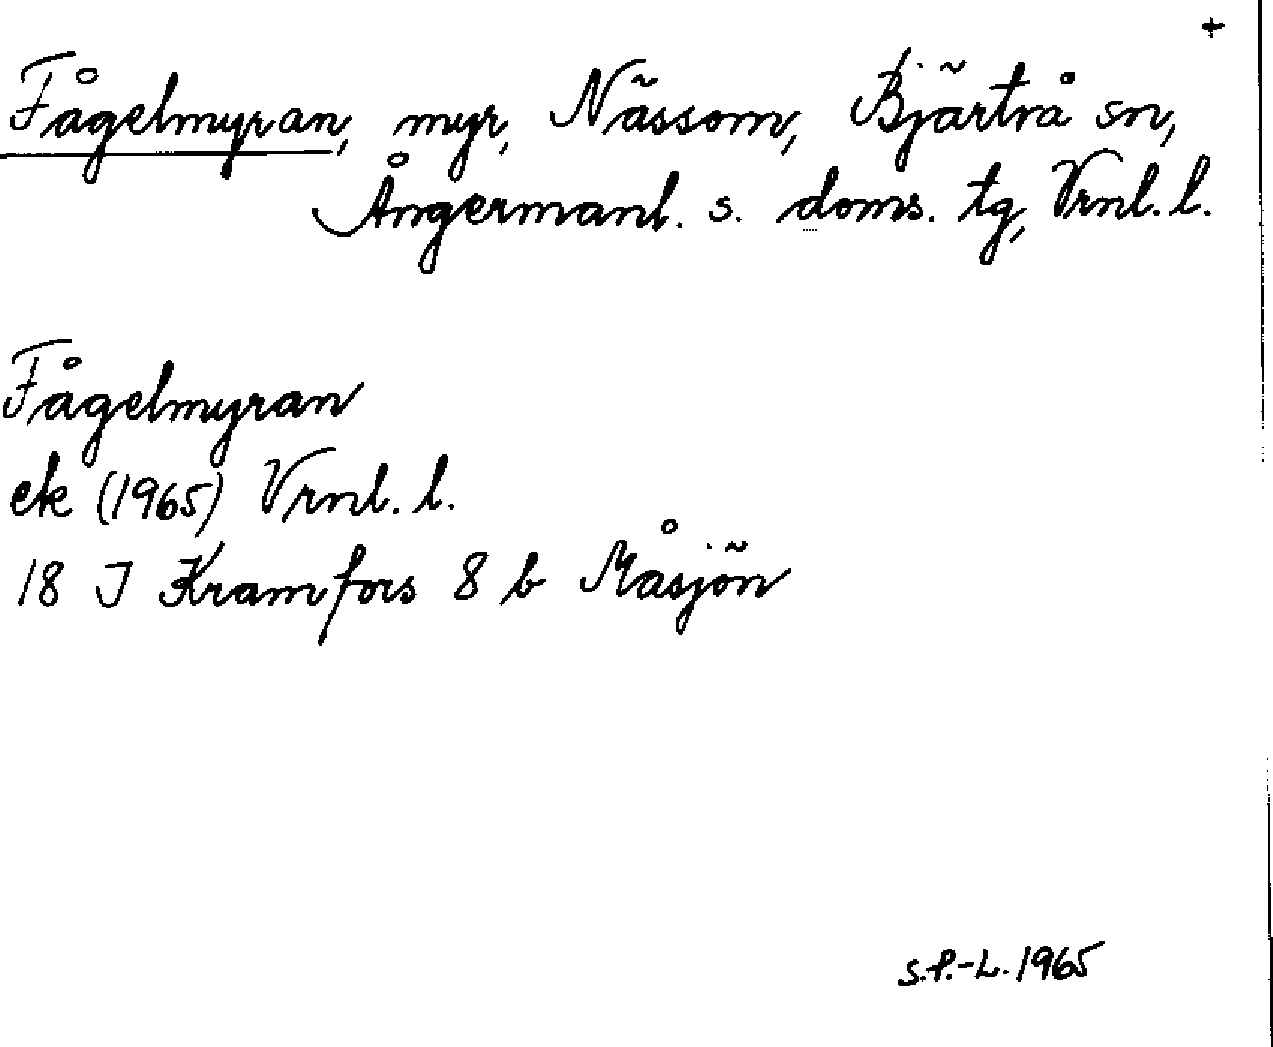 +
Fågelmyran, myr, Nässom, Bjärtrå sn,
Ångermanl. s. doms. tg, Vrnl. l.
Fågelmyran
ek (1965) Vrnl. l.
18 J Kramfors 8 b Måsjön
S.P.-L. 1965